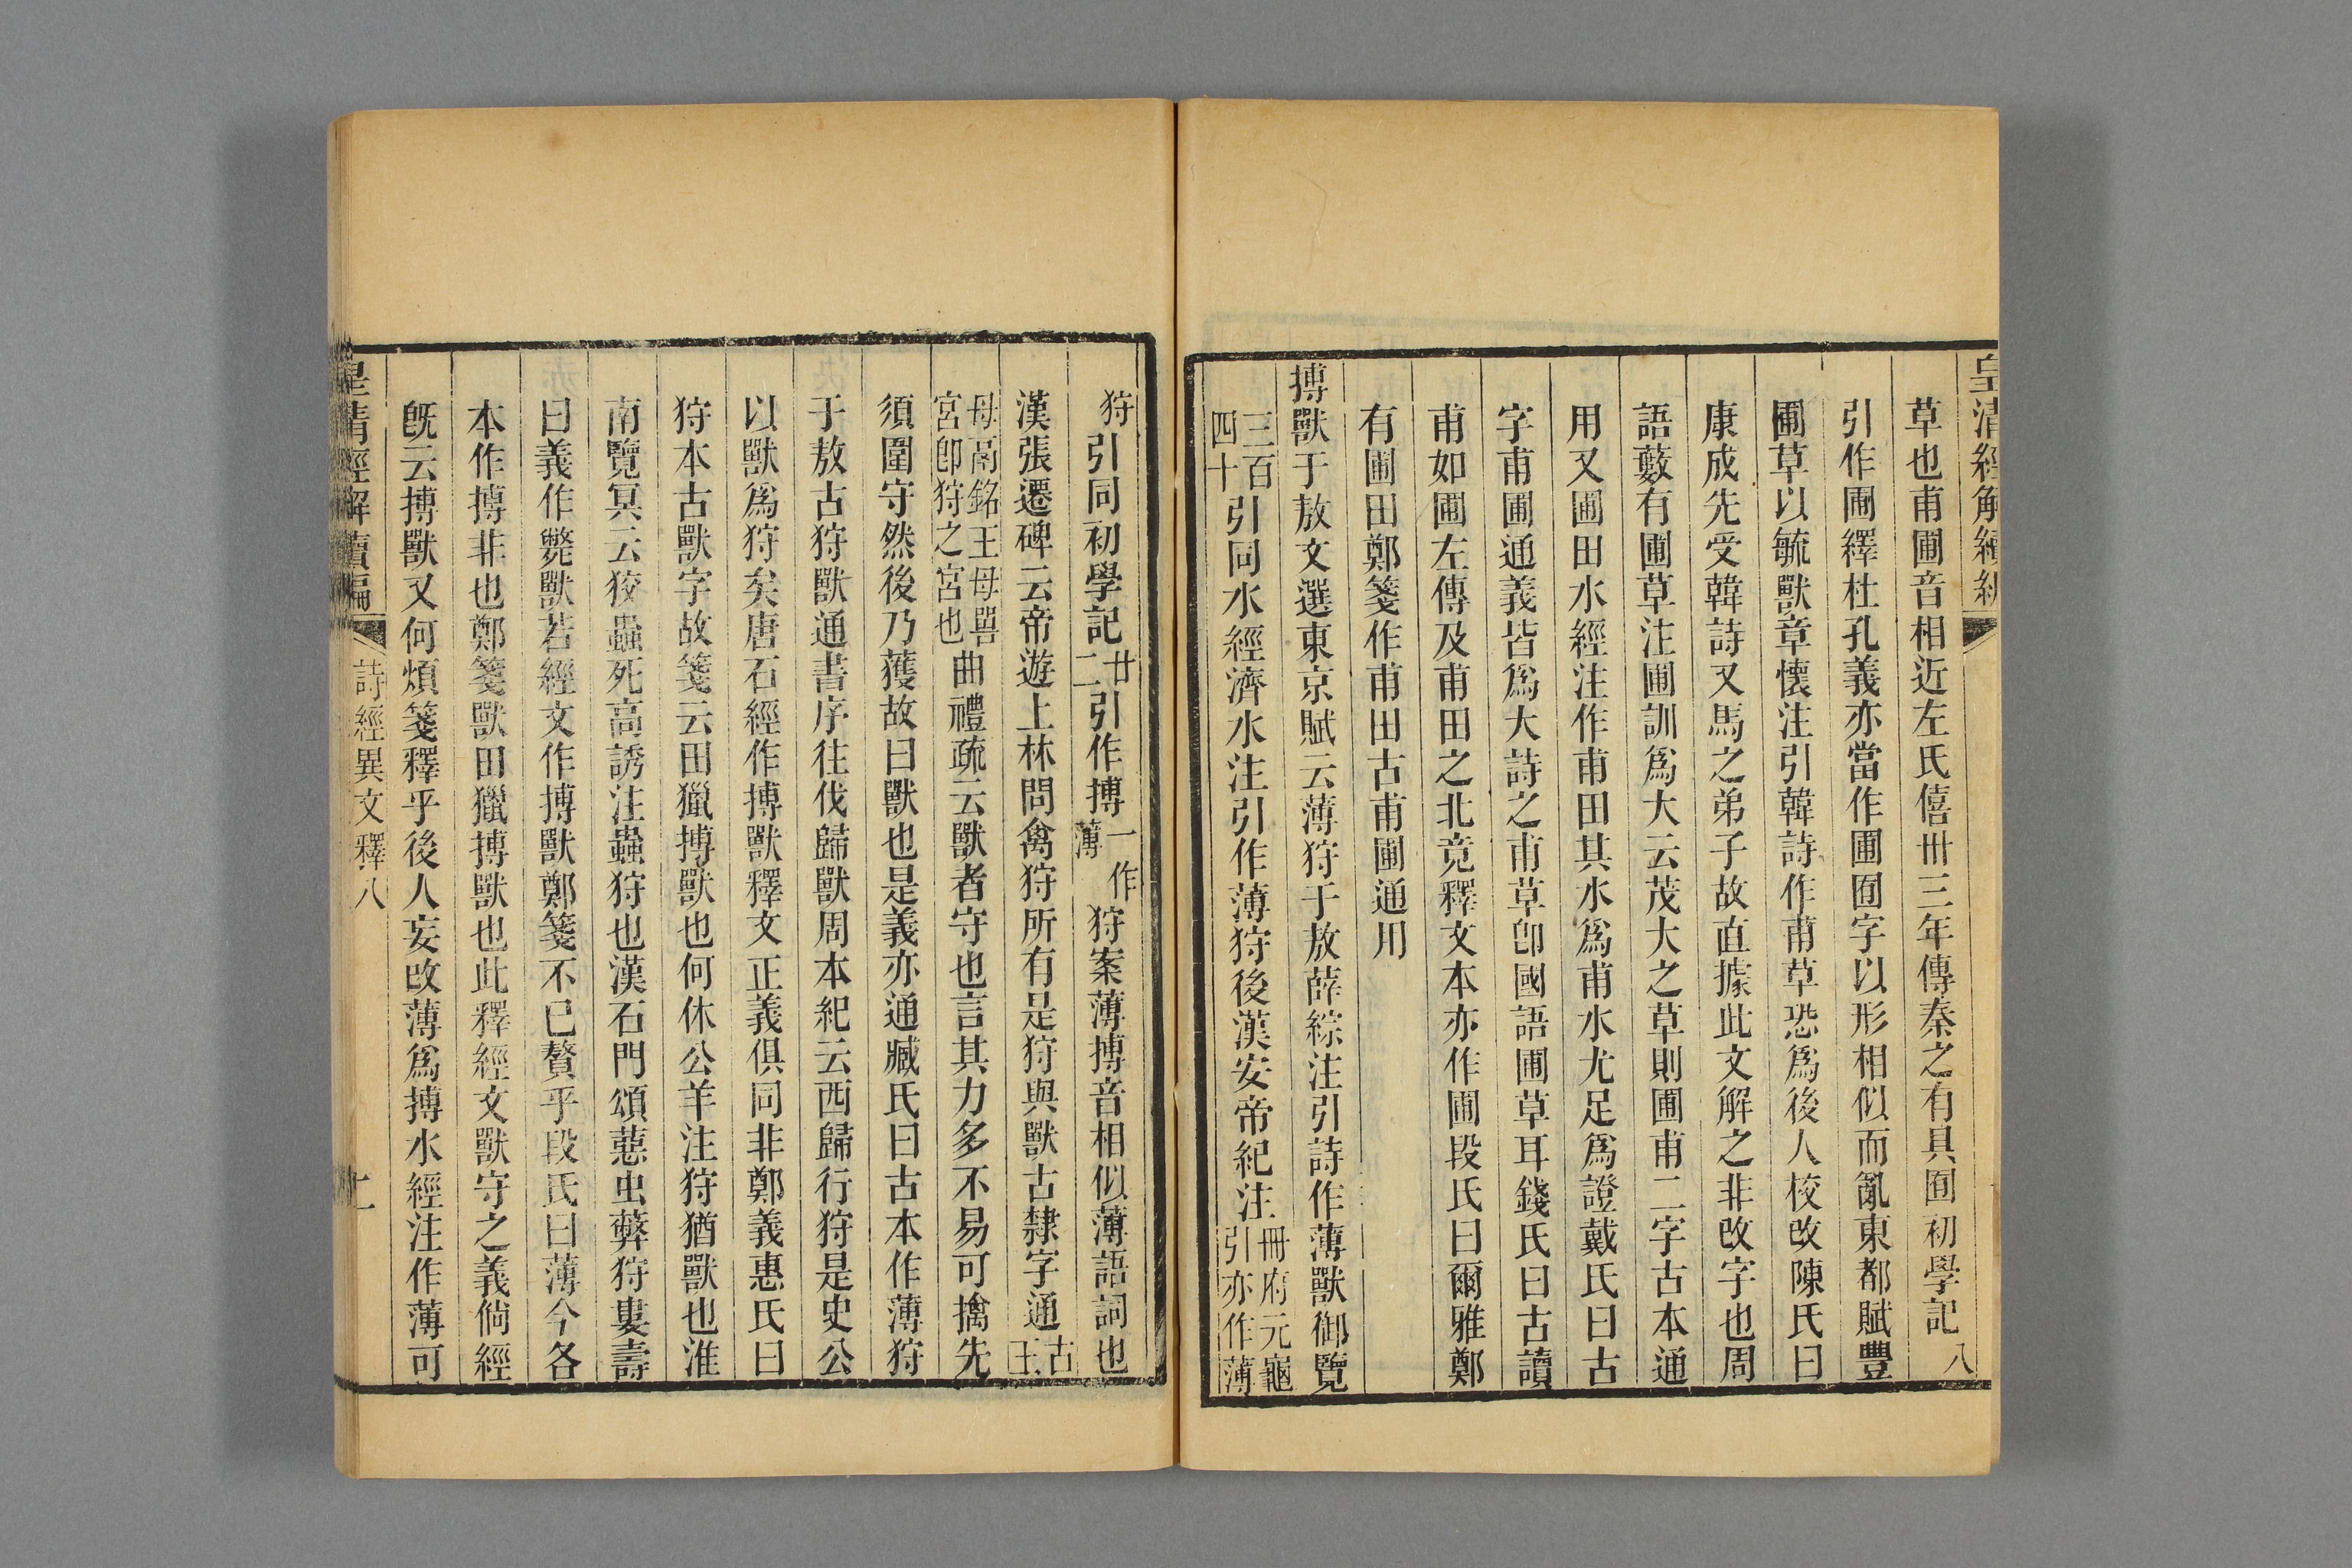 皇清經解續編
草也甫圃音相近左氏僖卅三年傳秦之有具囿初學記八
引作圃繹杜孔義亦當作圃囿字以形相似而亂東都賦豐
圃草以毓獸章懷注引韓詩作甫草恐爲後人校改陳氏曰
康成先受韓詩又馬之弟子故直據此文解之非改字也周
語藪有圃草注圃訓爲大云茂大之草則圃甫二字古本通
用又圃田水經注作甫田其水爲甫水尤足爲證戴氏曰古
字甫圃通義皆爲大詩之甫草卽國語圃草耳錢氏曰古讀
甫如圃左傳及甫田之北竟釋文本亦作圃段氏曰爾雅鄭
有圃田鄭箋作甫田古甫圃通用
搏獸于敖文選東京賦云薄狩于敖薛綜注引詩作薄獸御覽
三百四十引同水經濟水注引作薄狩後漢安帝紀注冊府元龜引亦作薄
狩引同初學記廿二引作搏一作薄狩案薄搏音相似薄語詞也
漢張遷碑云帝遊上林問禽狩所有是狩與獸古隸字通古王
母鬲銘王母嘼宮卽狩之宮也曲禮疏云獸者守也言其力多不易可擒先
須圍守然後乃獲故曰獸也是義亦通臧氏曰古本作薄狩
于敖古狩獸通書序往伐歸獸周本紀云西歸行狩是史公
以獸爲狩矣唐石經作搏獸釋文正義俱同非鄭義惠氏曰
狩本古獸字故箋云田獵搏獸也何休公羊注狩猶獸也淮
南覽冥云狡蟲死高誘注蟲狩也漢石門頌蒽虫蔽狩婁壽
曰義作斃獸若經文作搏獸鄭箋不已贅乎段氏曰薄今各
本作搏非也鄭箋獸田獵搏獸也此釋經文獸守之義倘經
旣云搏獸又何煩箋釋乎後人妄改薄爲搏水經注作薄可
皇清經解續編 詩經異文釋八